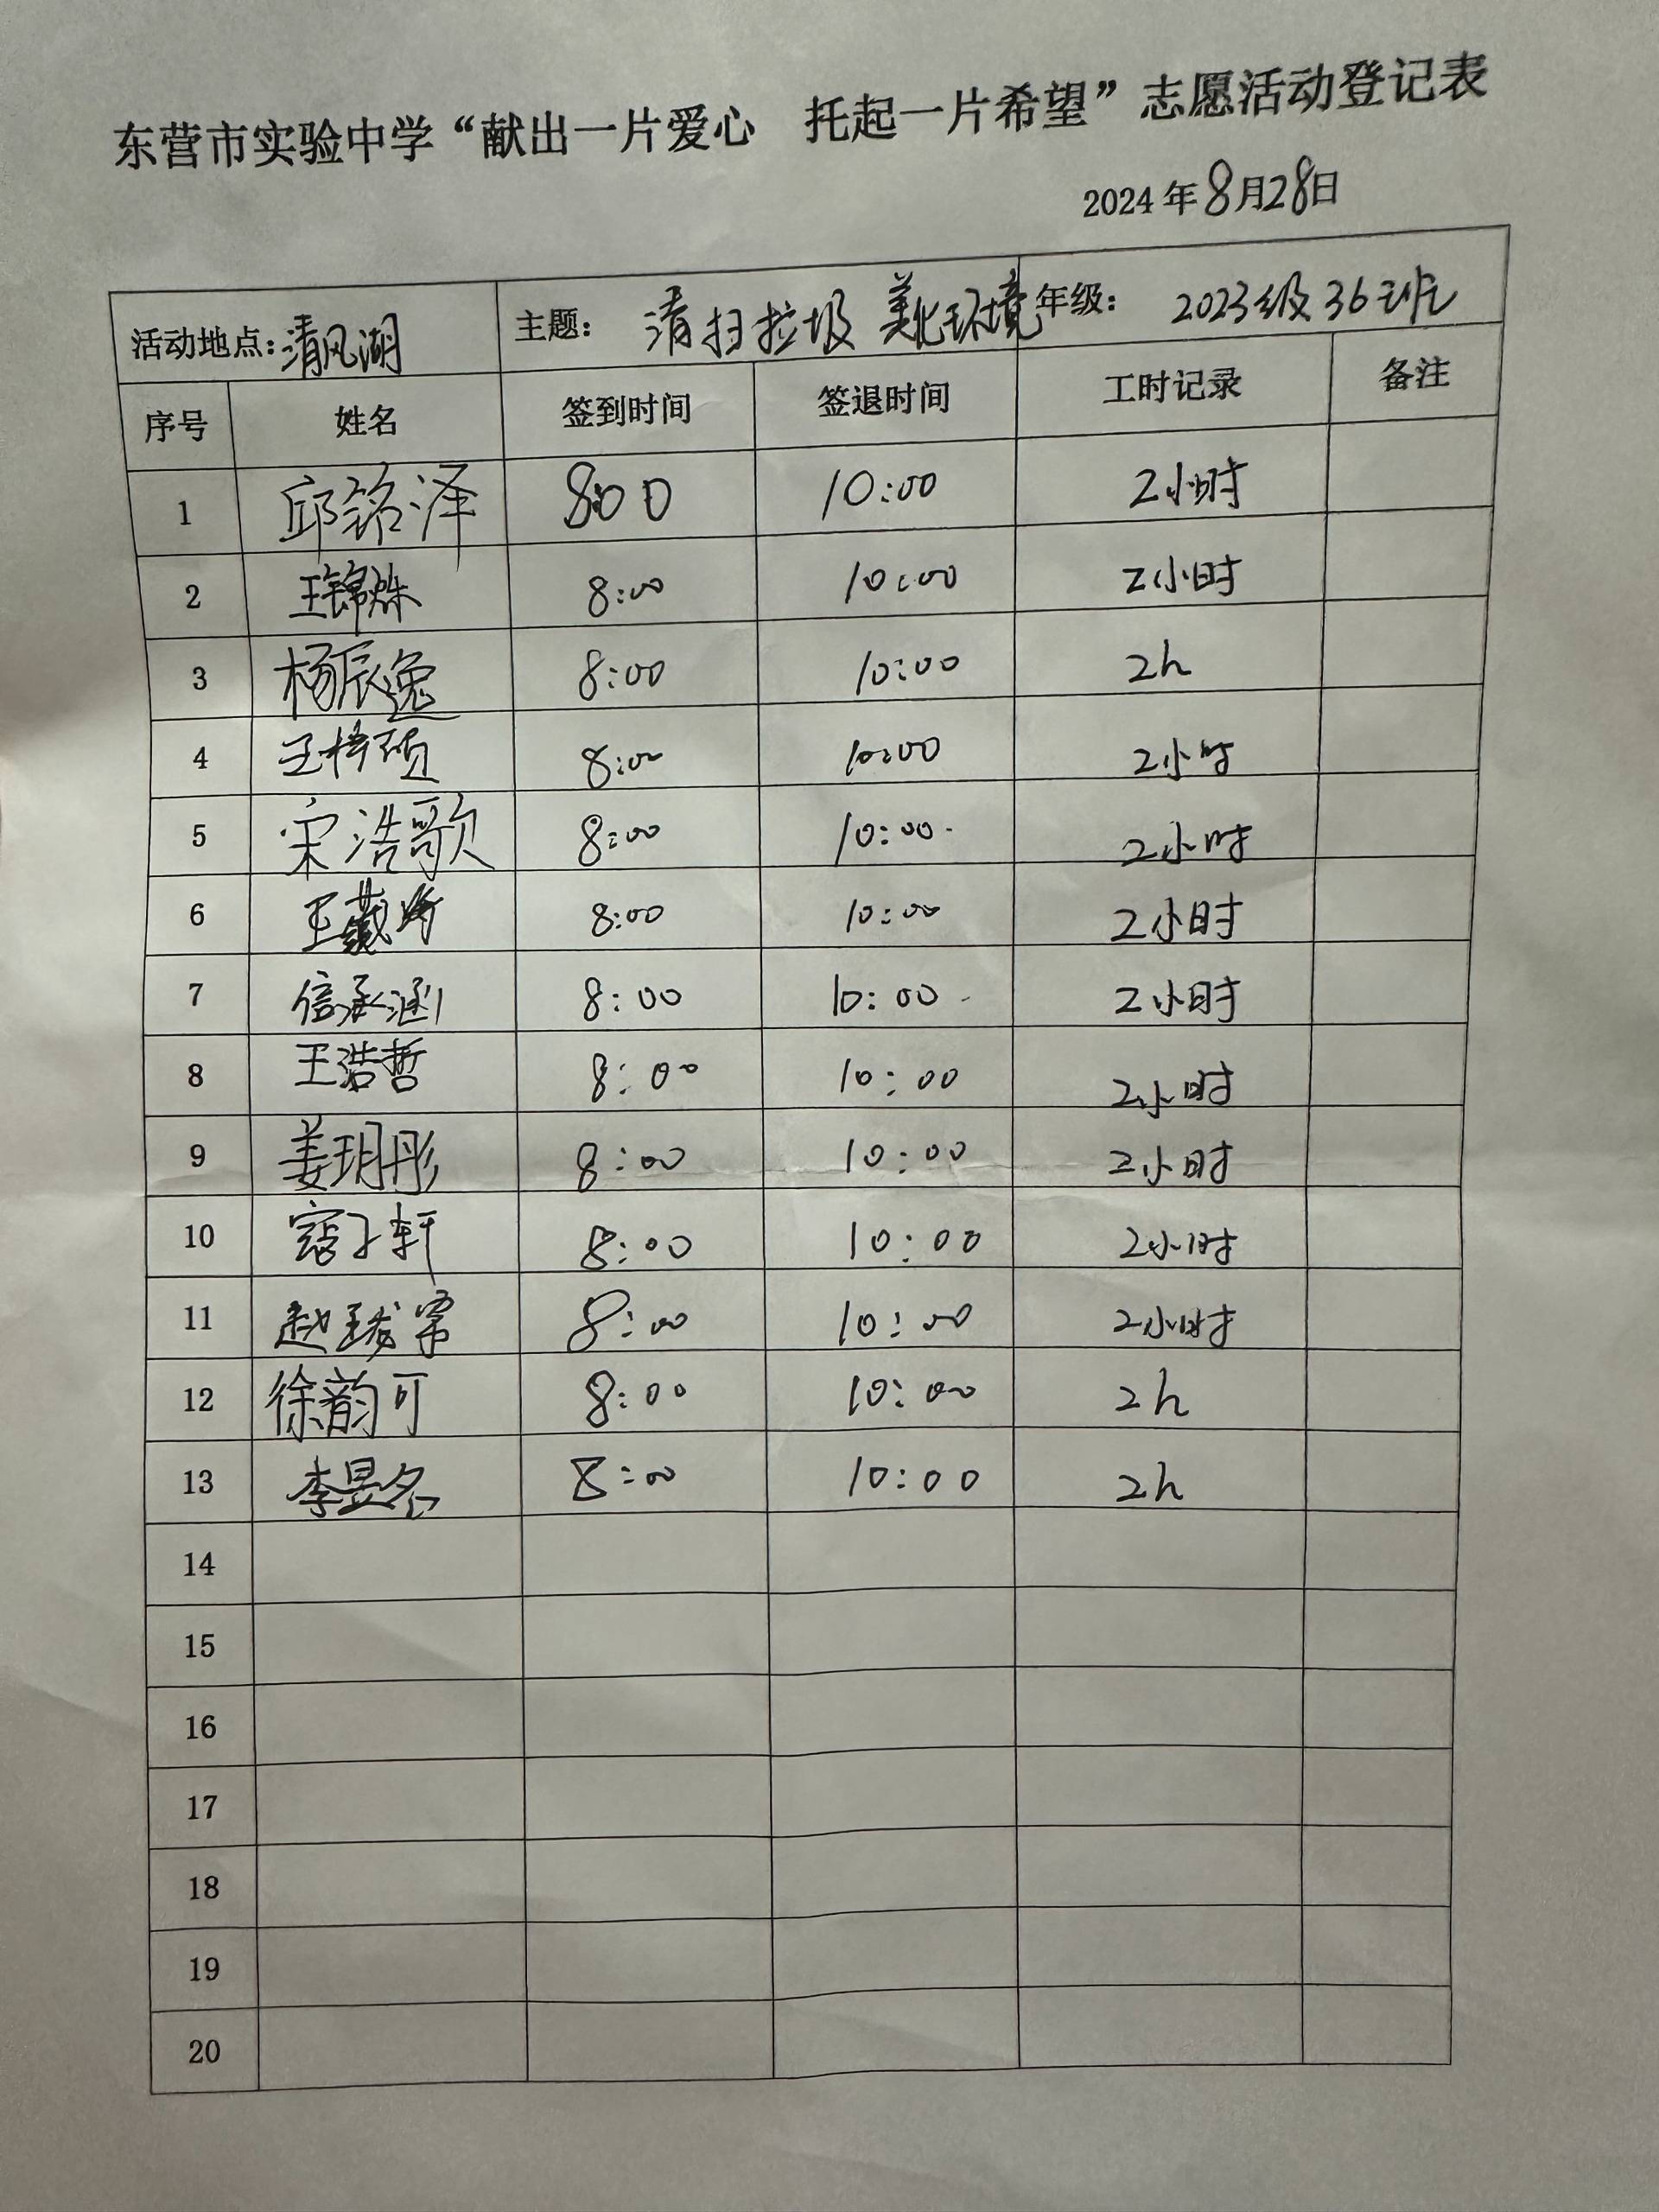 东营市实验中学“献出一片爱心 托起一片希望”志愿活动登记表
2024 年 8月28日
活动地点:清风湖 主题: 清扫垃圾 美化环境 年级: 2023级36班
序号 姓名 签到时间 签退时间 工时记录 备注
1 邱铭泽 8:00 10:00 2小时
2 王锦姝 8:00 10:00 2小时
3 杨辰逸 8:00 10:00 2h
4 王梓硕 8:00 10:00 2小时
5 宋浩歌 8:00 10:00 2小时
6 8:00 10:00 2小时
7 信承涵 8:00 10:00 2小时
8 王浩哲 8:00 10:00 2小时
9 姜玥彤 8:00 10:00 2小时
10 寇子轩 8:00 10:00 2小时
11 8:00 10:00 2小时
12 徐韵可 8:00 10:00 2h
13 8:00 10:00 2h
14
15
16
17
18
19
20